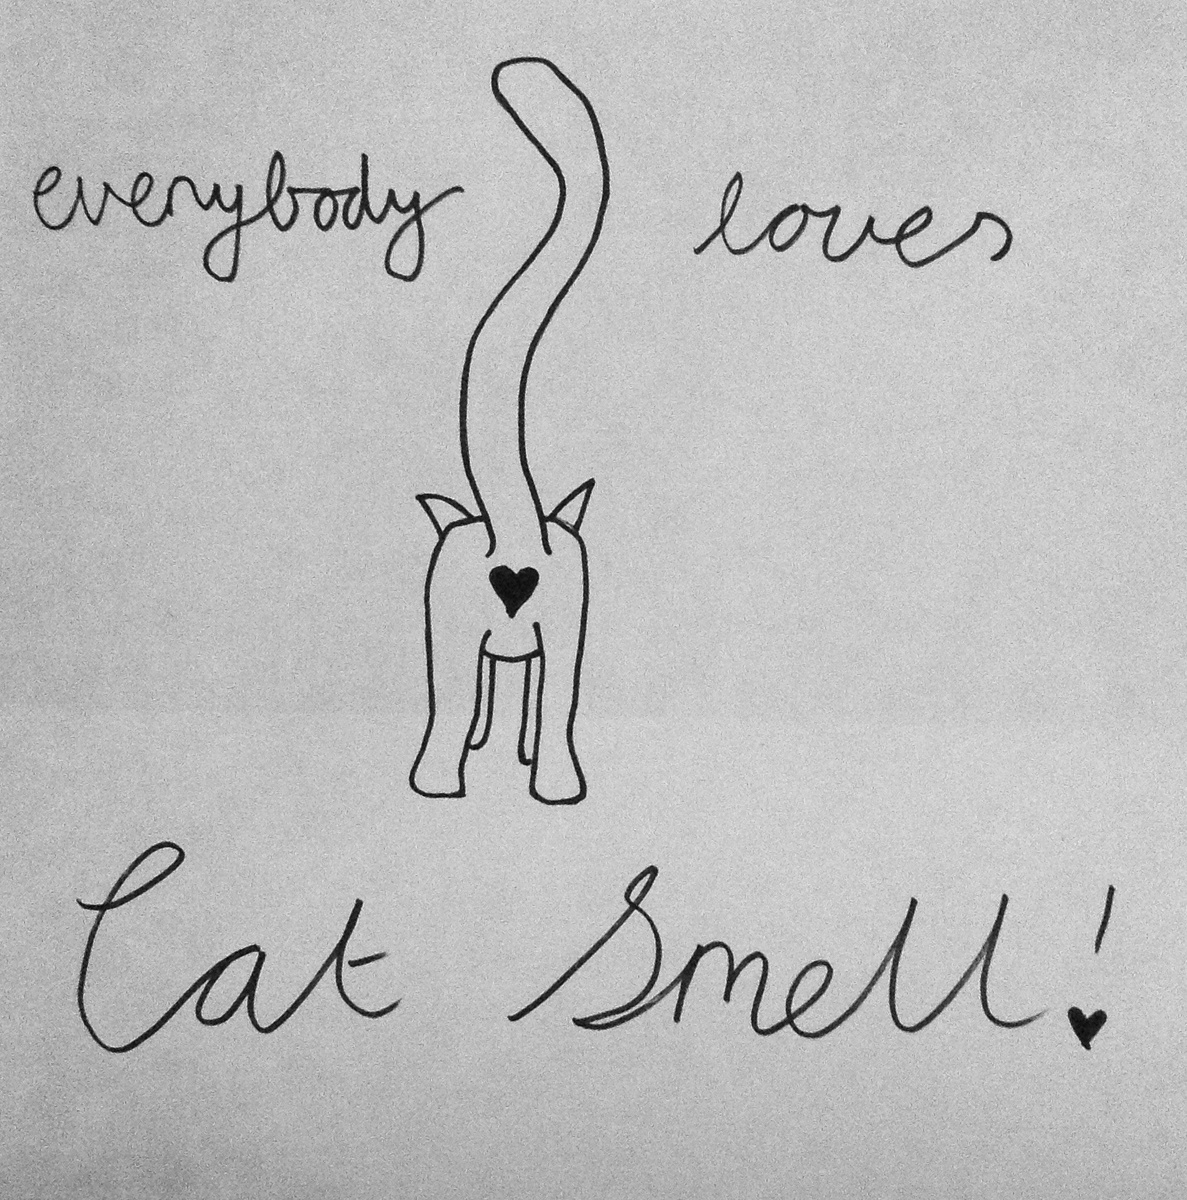 everybody loves
Cat Smell!